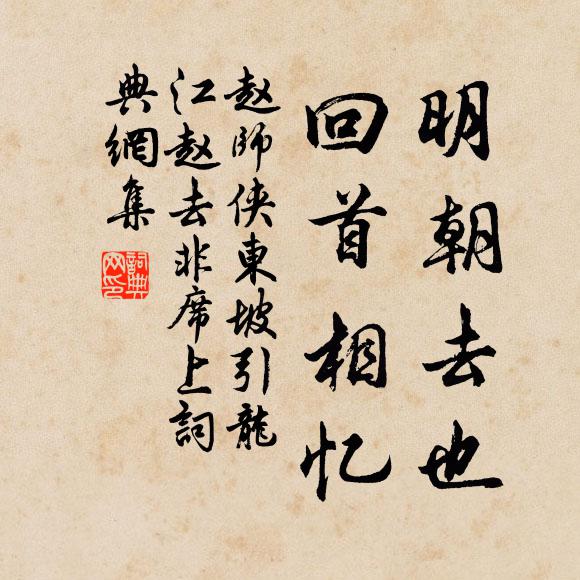 明朝去也
回首相忆
赵師侠東坡引龍
江赵去非席上詞
典網集
詞典网印